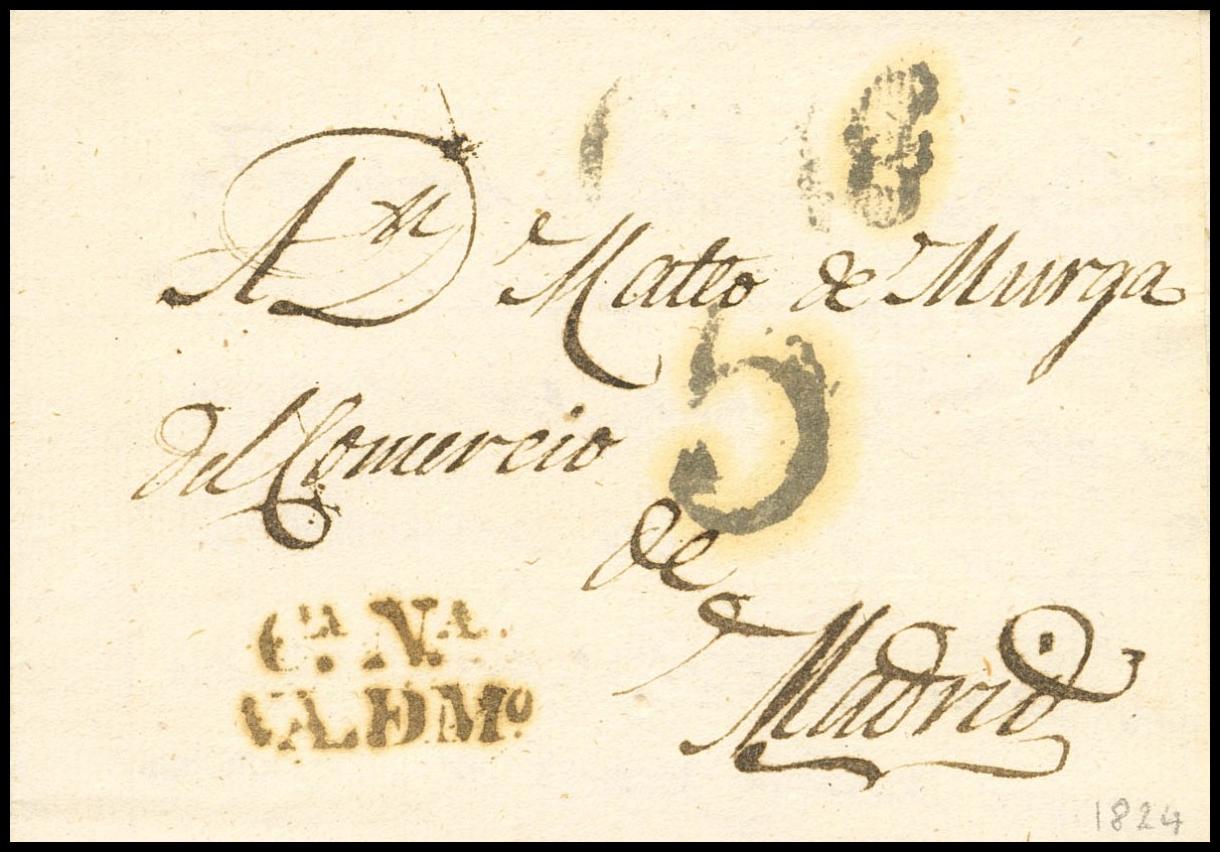 6
A D.n Mateo de Murga
5
del Comercio
de
Madrid
C.A N.A
VALDMº
1824